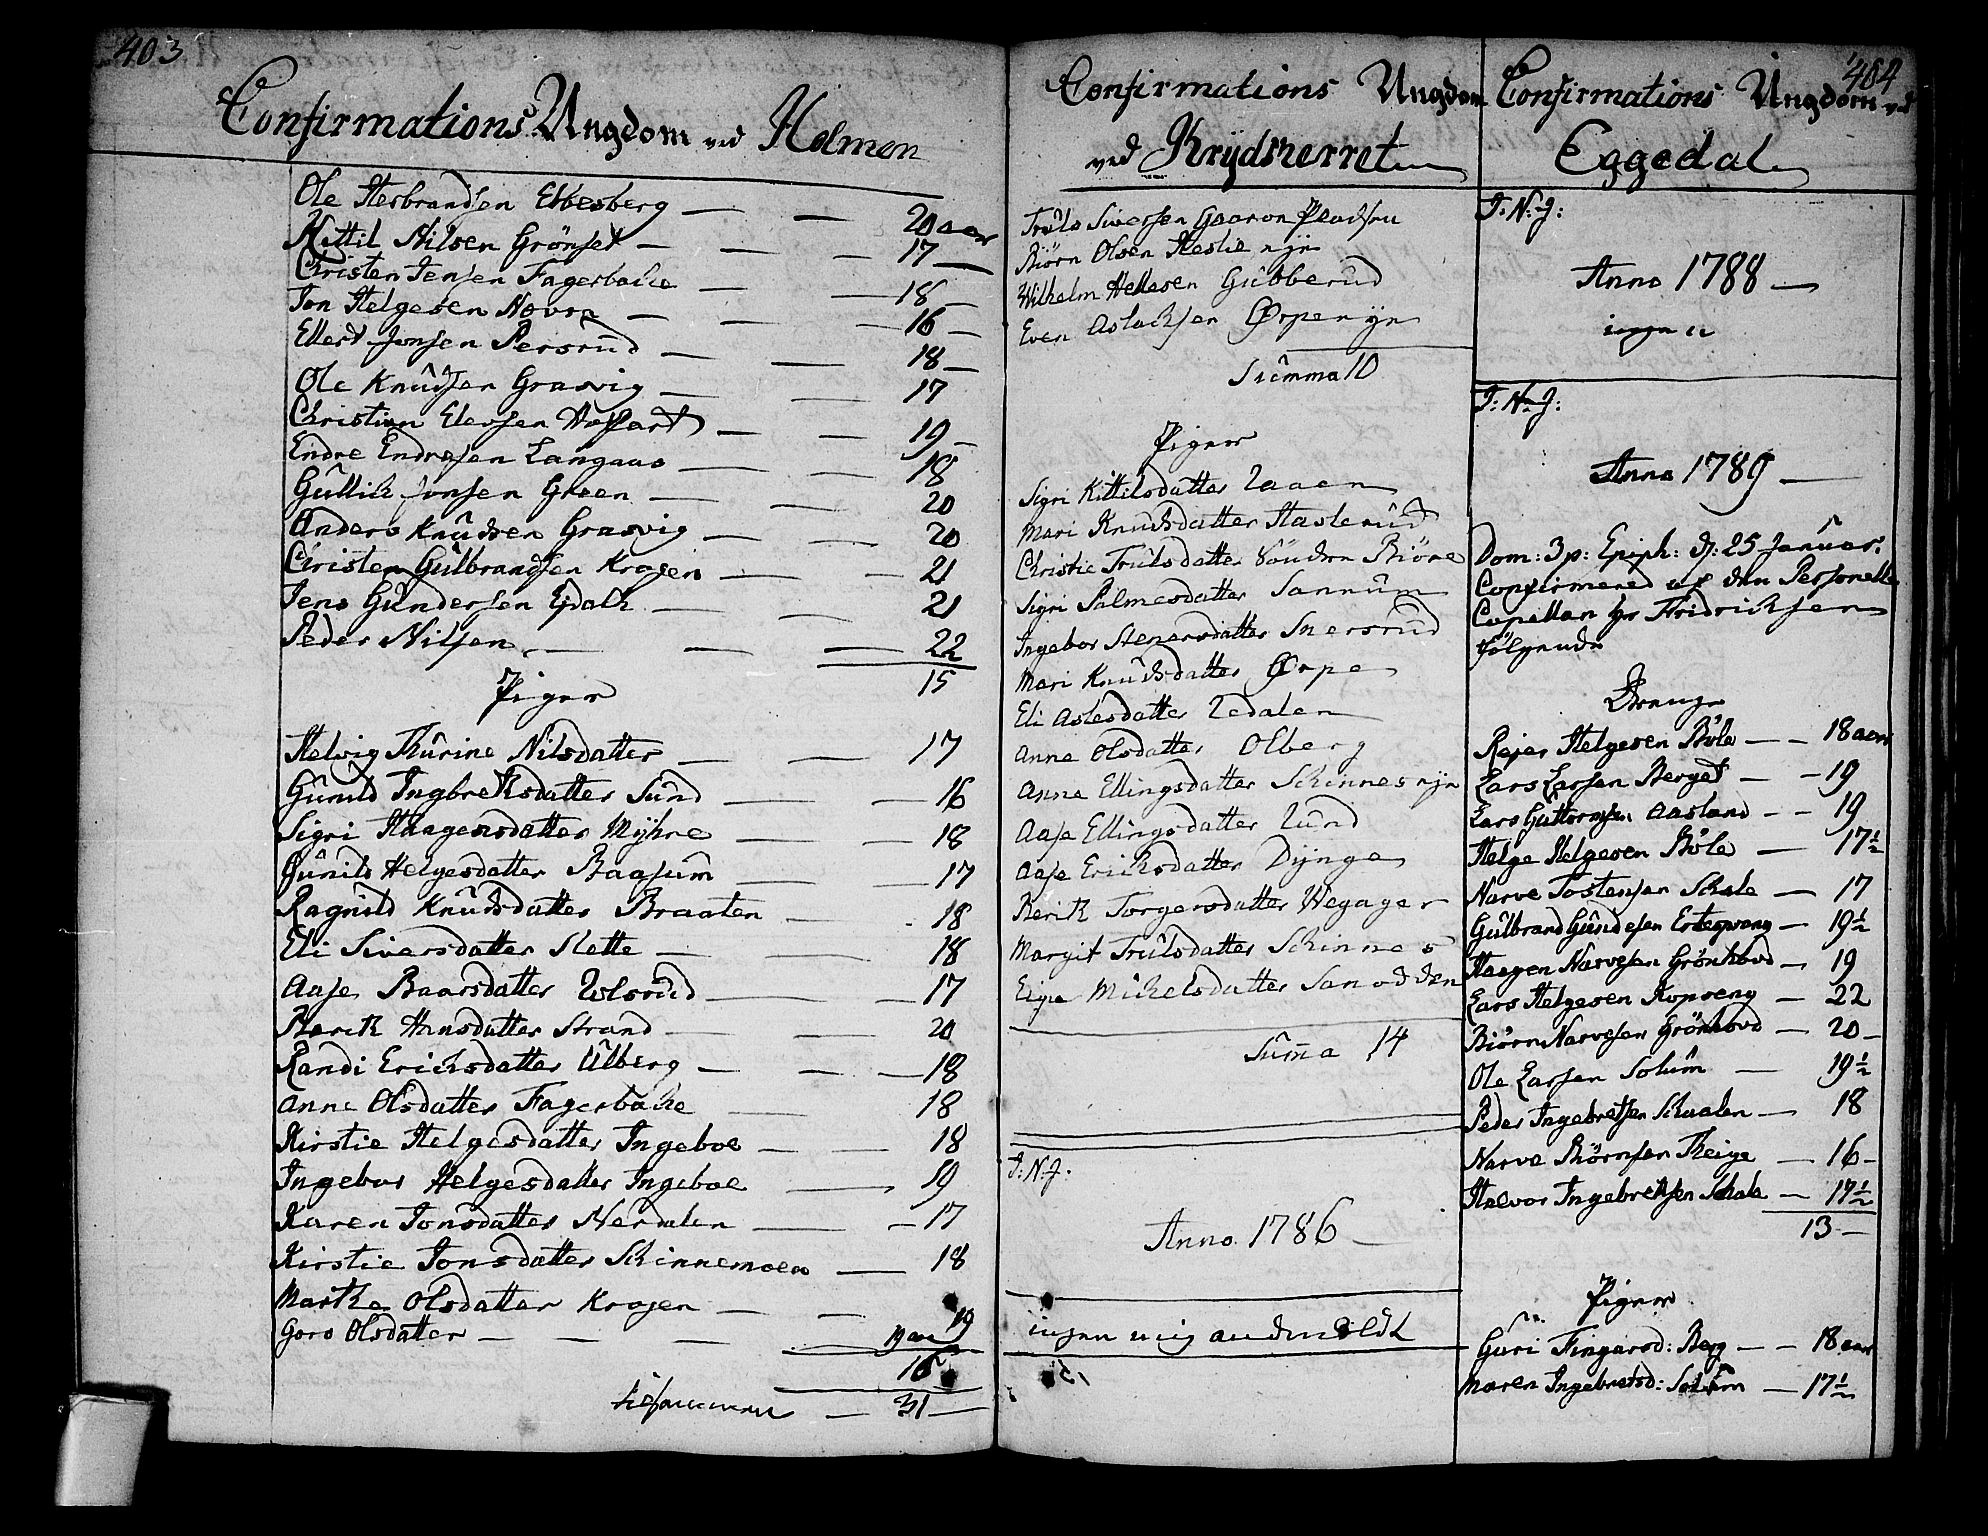 403
Confirmations Ungdom ved Holmen
Ole Sterbrandsen Ebbesberg — — 20 aar
Kittil Nilsen Grönset — — — 17 —
Christen Jensen Fagerbakke — — 18 —
Jon Helgesen — — — 16 —
Ellert Jonsen Persrud — — 18 —
Ole Knudsen Grasvig — — 17
Christian — — 19 —
Endre Endresen Langaas — — 18
Gullich Jonsen Green — — 20
Anders Knudsen Grasvig — — 20
Christen Gulbrandsen Kragen — — 21
Jens Gundersen — — 21
Peder Nilsen — — — 22
15
Piger
Helvig Thurine Nilsdatter — — 17
Gunild Ingbretsdatter Sund — — 16
Sigri Haagensdatter Myhre — — 18
Gunild Helgesdatter Baasum — — 17
Ragnild Knudsdatter Braaten — - 18
Eli Siversdatter Slette — — 18
Aase Baarsdatter Ulsrud — — 17
Berit Hansdatter Strand — — 20
Randi Erichsdatter Ulberg — — — 18
Anne Olsdatter Fagerbakke — — 18
Kirstie Helgesdatter Ingeboe — — 18
Ingebor Helgesdatter Ingeboe — — 19
Karen Jonsdatter Nerdalen — — 17
Kirstie Jonsdatter Skinnemoen — 18
Marthe Olsdatter Kragen — — 19
Goro Olsdatter — — — 19 aar
16
tilsammen — 31 —
Confirmations Ungdom
ved Krydsherret
Truls Siversen Gaaron Pladsen
Biörn Olsen Heslie ejr
Wilhelm Hellesen Gubberud
Even Aslachsen Ørpen ejr
Summa 10
Piger
Sigri Kittilsdatter Laaen
Mari Knudsdatter Hasterud
Christie Trulsdatter Söndre Biöre
Sigri Palmesdatter Sannum
Ingebor Stenersdatter Snersrud
Mari Knudsdatter Ørpe
Eli Aslesdatter Vedalen
Anne Olsdatter Olberg
Anne Ellingsdatter Schinnes ejr
Aase Ellingsdatter Lund
Aase Erichsdatter Dynge
Berit Torgersdatter Wegager
Margit Trulsdatter Schinnes
Michelsdatter Sanodden
Summa 14
J: N: J:
Anno 1786 —
ingen
404
Confirmations Ungdom ved
Eggedal
J: N: J:
Anno 1788 —
ingen
J: N: J:
Anno 1789 —
Dom: 3 p: Epiph: d: 25 Januar.
Confirmered af den Personelle
Capellan hr Fridrichsen
fölgende
Drenge
Rejer Helgesen Böle — – 18 aar
Lars Larsen Berget — – 19
Lars Guttormsen Aasland – – 19
Helge Helgesen Böle — 17½
Narve Tostensen Skale — 17
Gulbrand Gundesen — 19½
Haagen Narvesen Grönhovd — 19
Lars Helgesen Kopseng — 22
Biörn Narvesen Grönhovd — 20 –
Ole Larsen Solum — 19½
Peder Ingebretsen Skaalen — 18
Narve Biörnsen Theige — 16 –
Halvor Ingebretsen Skale — 17½
13 –
Piger
Guri Fingarsd: Berg — – 18 aar
Maren Ingebretsd: Solum — 17½